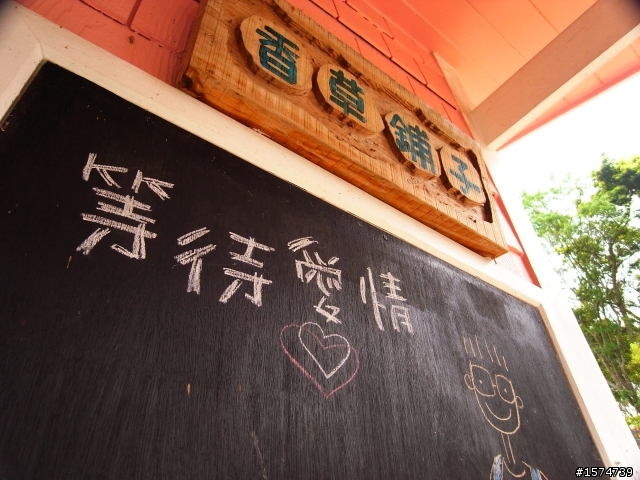 香草鋪子
等待愛情
#1574739